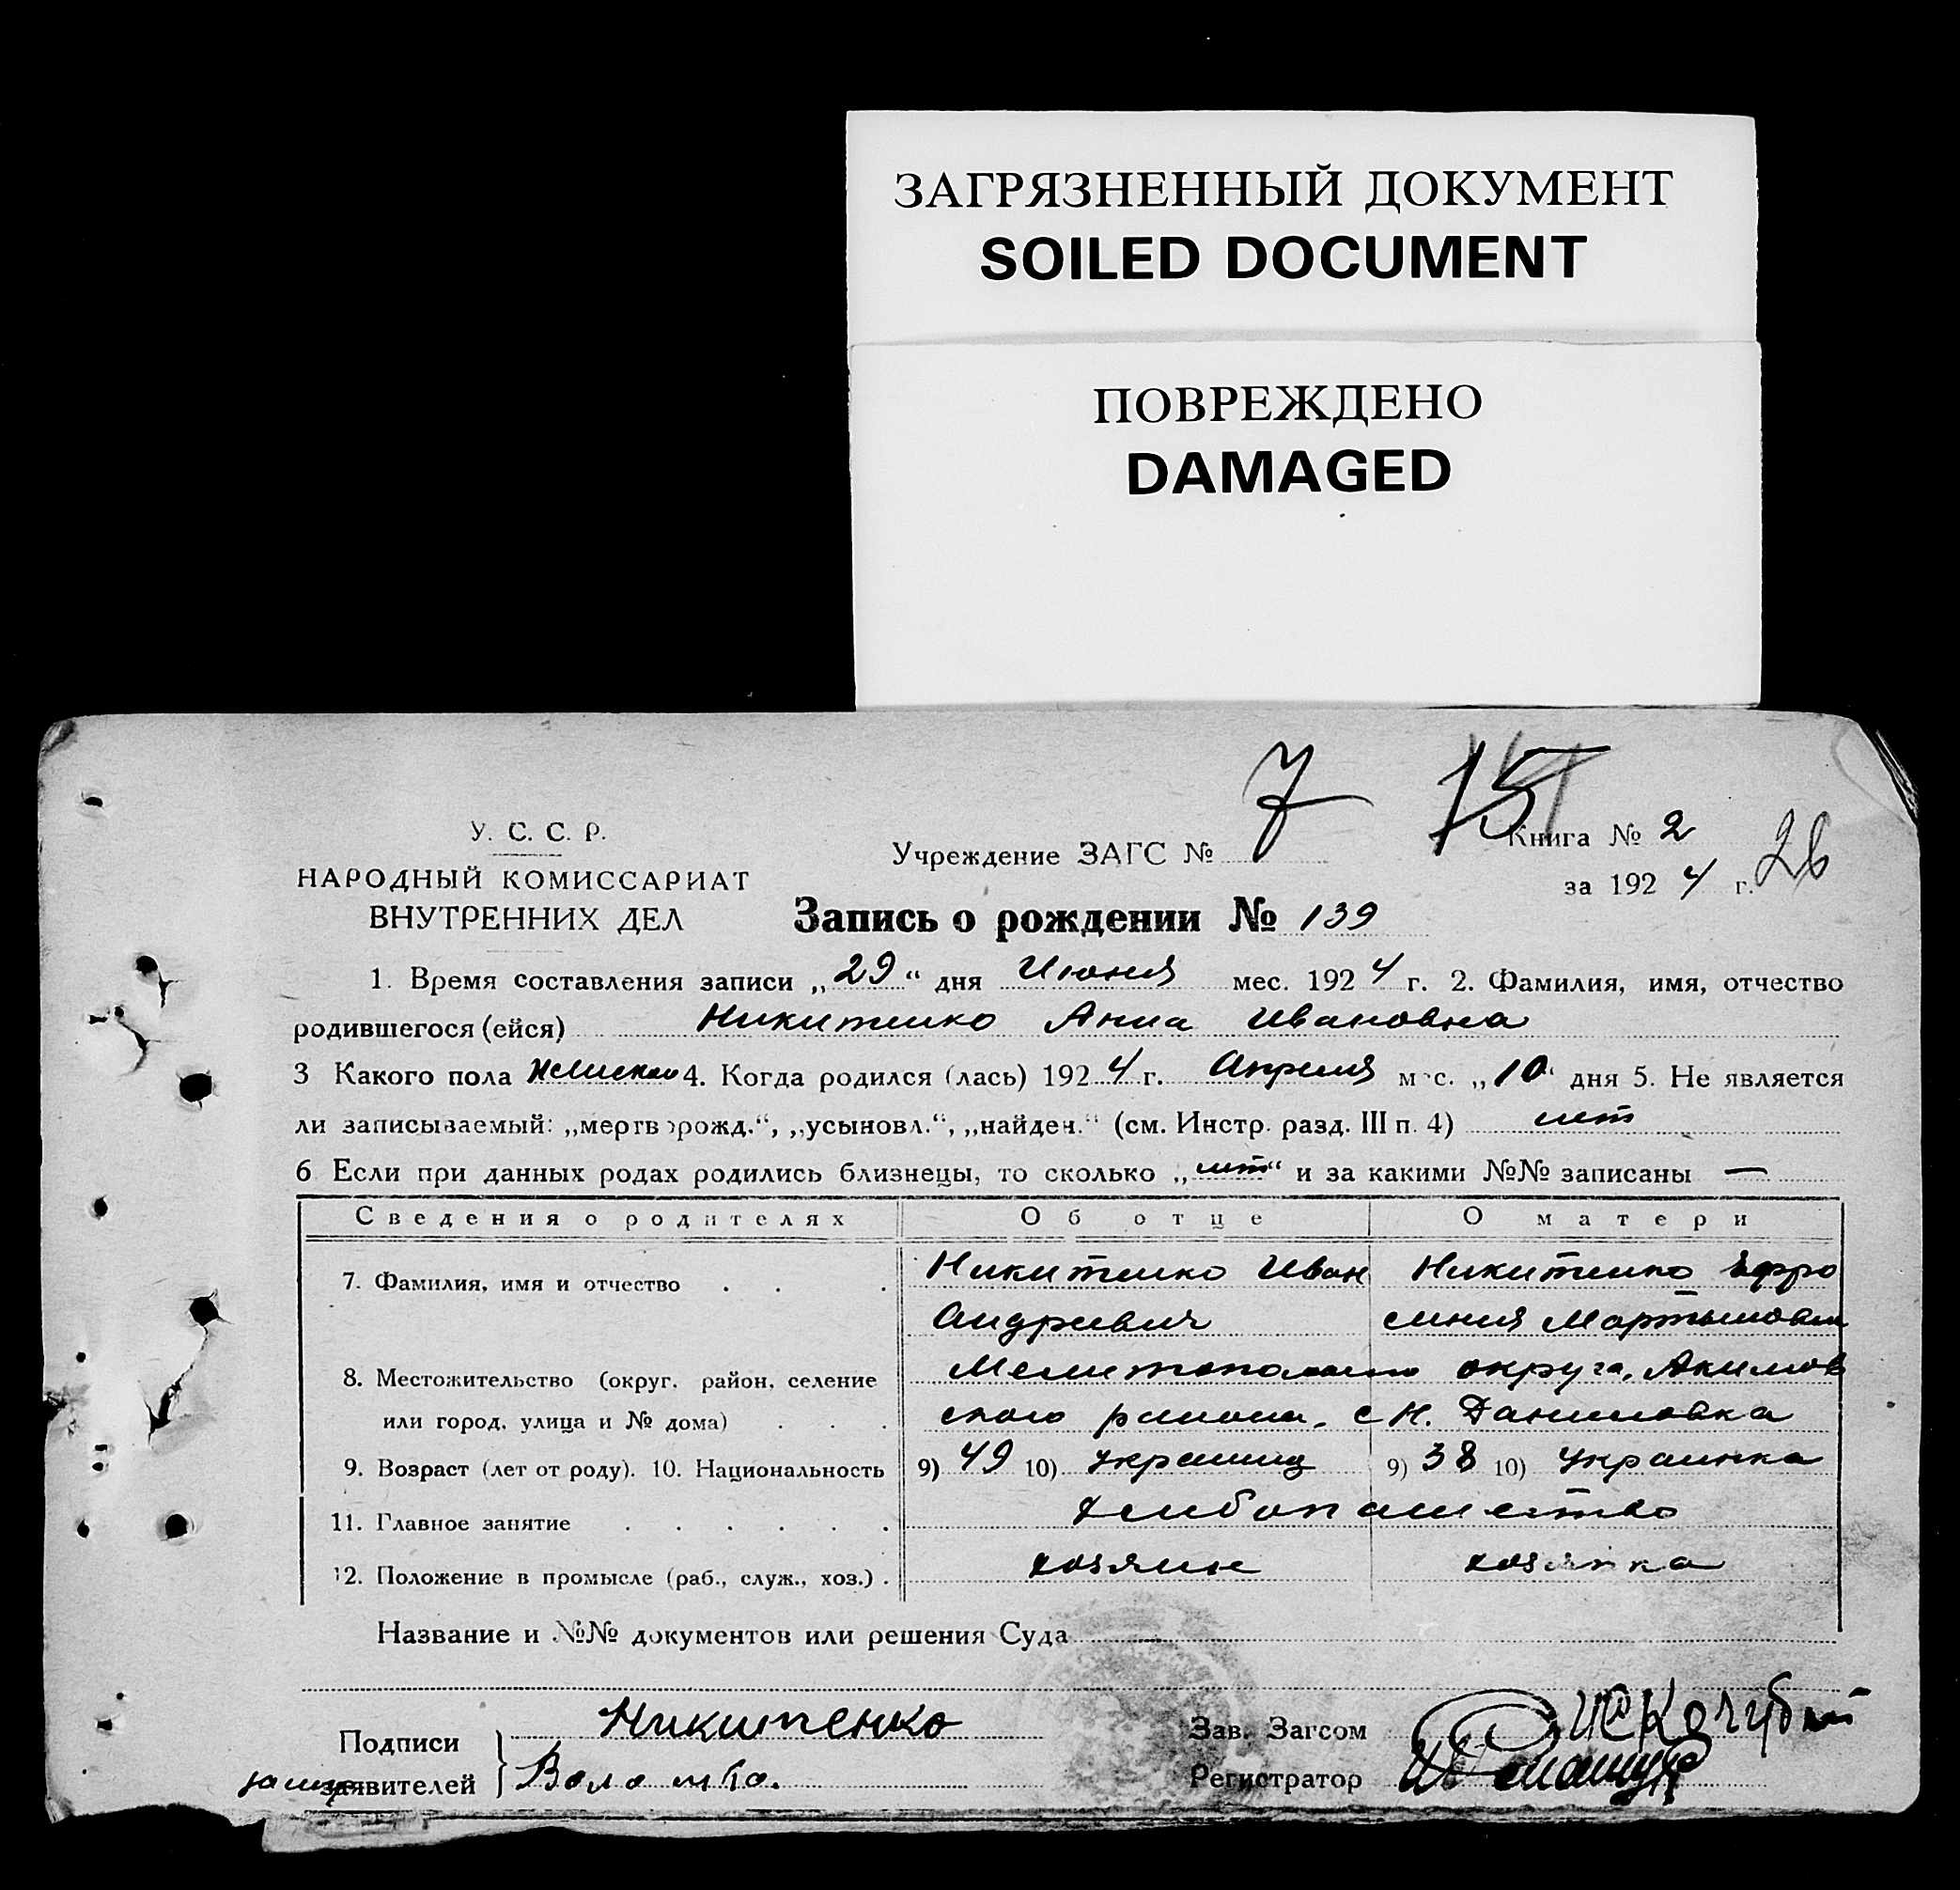 ЗАГРЯЗНЕННЫЙ ДОКУМЕНТ
SOILED DOCUMENT
ПОВРЕЖДЕНО
DAMAGED
7 15
У. С. С. Р.
НАРОДНЫЙ КОМИССАРИАТ
ВНУТРЕННИХ ДЕЛ
Учреждение ЗАГС №
Книга № 2
за 1924 г. 26
Запись о рождении № 139
1. Время составления записи „29“ дня Июня мес. 1924 г. 2. Фамилия, имя, отчество
родившегося (ейся) Никитенко Анна Ивановна
3 Какого пола Женскаго 4. Когда родился (лась) 1924 г. Апреля мес. „10“ дня 5. Не является
ли записываемый: „мертворожд.“, „усыновл.“, „найден.“ (см. Инстр. разд. III п. 4) нет
6 Если при данных родах родились близнецы, то сколько „нет“ и за какими №№ записаны —
Сведения о родителях Об отце О матери
7. Фамилия, имя и отчество Никитенко Иван Никитенко Ефро
Андревич синия Мартыновна
8. Местожительство (округ, район, селение Мелитопольского округа, Акимов
или город, улица и № дома) ского района, с Н. Даниловка
9. Возраст (лет от роду). 10. Национальность 9) 49 10) Украинец 9) 38 10) Украинка
11. Главное занятие хлебопашество
12. Положение в промысле (раб., служ., хоз.) хозяин хозяйка
Название и №№ документов или решения Суда
Подписи Никитенко
заявителей
Зав. Загсом Кочубей
Регистратор